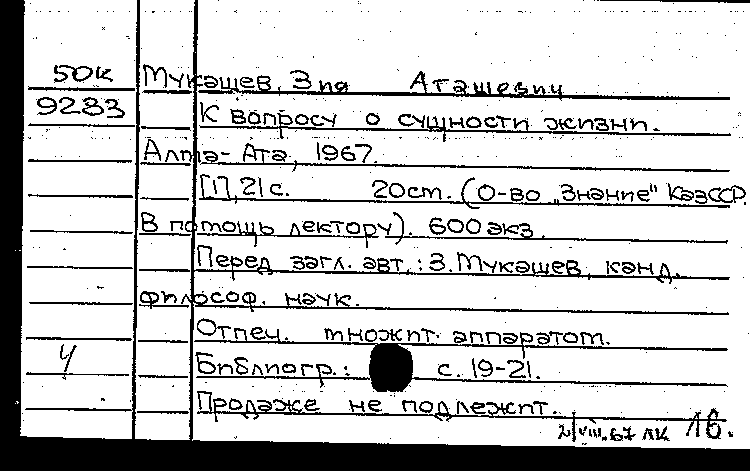 50к Мукашев, Зия Аташевич
9283 К вопросу о сущности жизни.
Алма-Ата, 1967.
[1], 21 с. 20 см. (О-во "Знание" КазССР.
В помощь лектору). 600 экз.
Перед загл. авт.: З. Мукашев, канд.
философ. наук.
Отпеч. множит. аппаратом.
Библиогр.: с. 19-21.
Продаже не подлежит.
2/VIII.67 ЛК 16.